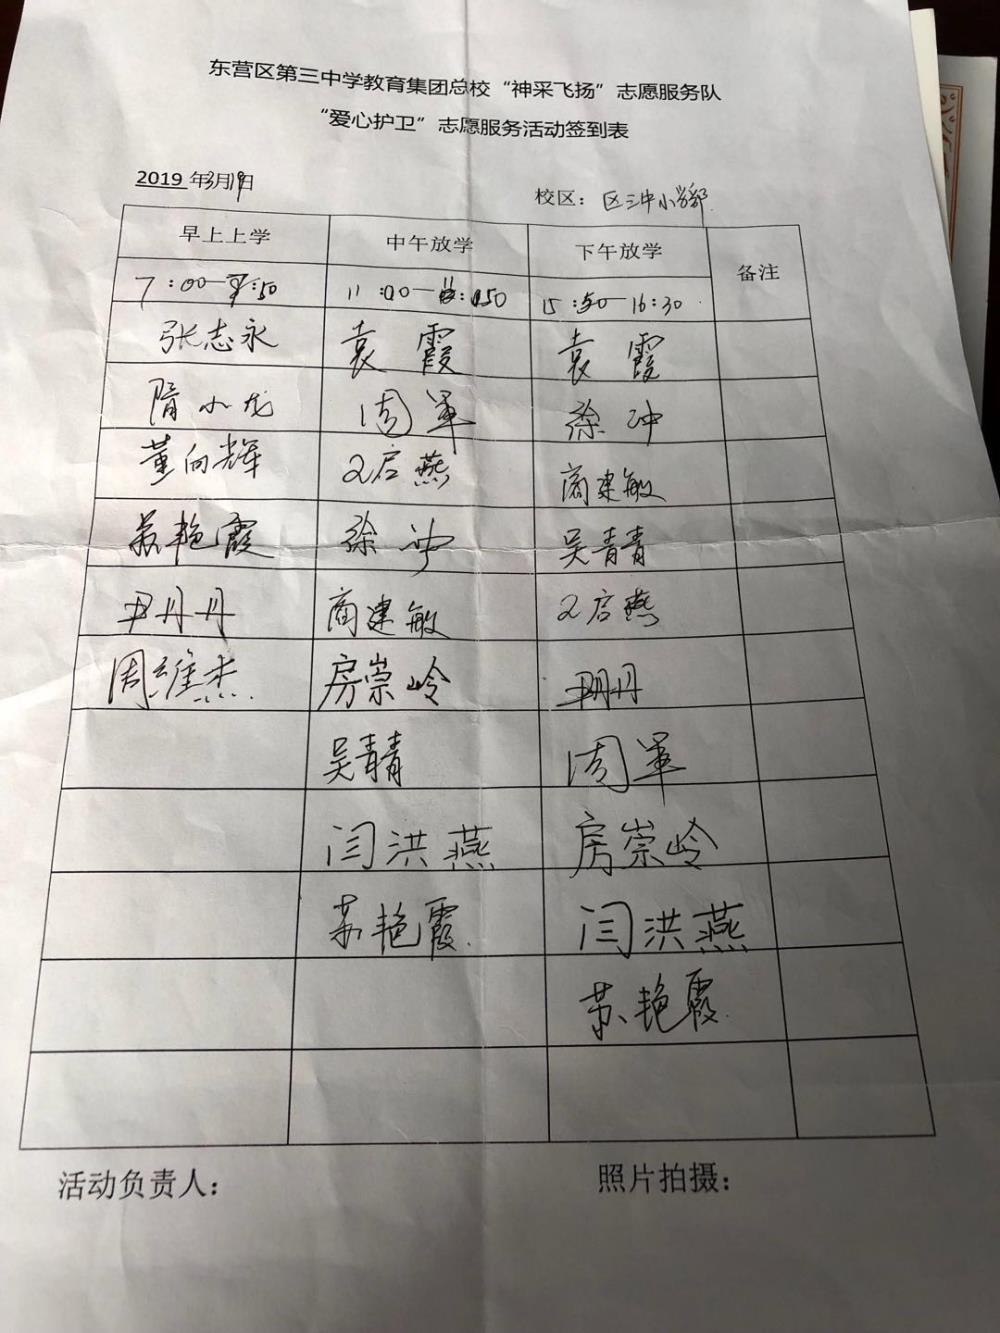 东营区第三中学教育集团总校“神采飞扬”志愿服务队
“爱心护卫”志愿服务活动签到表
2019 年3月19日 校区： 区三中小学部
早上上学 中午放学 下午放学 备注
7:00-7:50 11:00-11:50 15:50-16:30
张志永 袁霞 袁霞
隋小龙 周军 徐冲
董向辉 启燕 商建敏
苏艳霞 徐冲 吴青青
尹丹丹 商建敏 启燕
周维杰 房崇岭 尹丹丹
吴青青 周军
闫洪燕 房崇岭
苏艳霞 闫洪燕
苏艳霞
活动负责人： 照片拍摄：